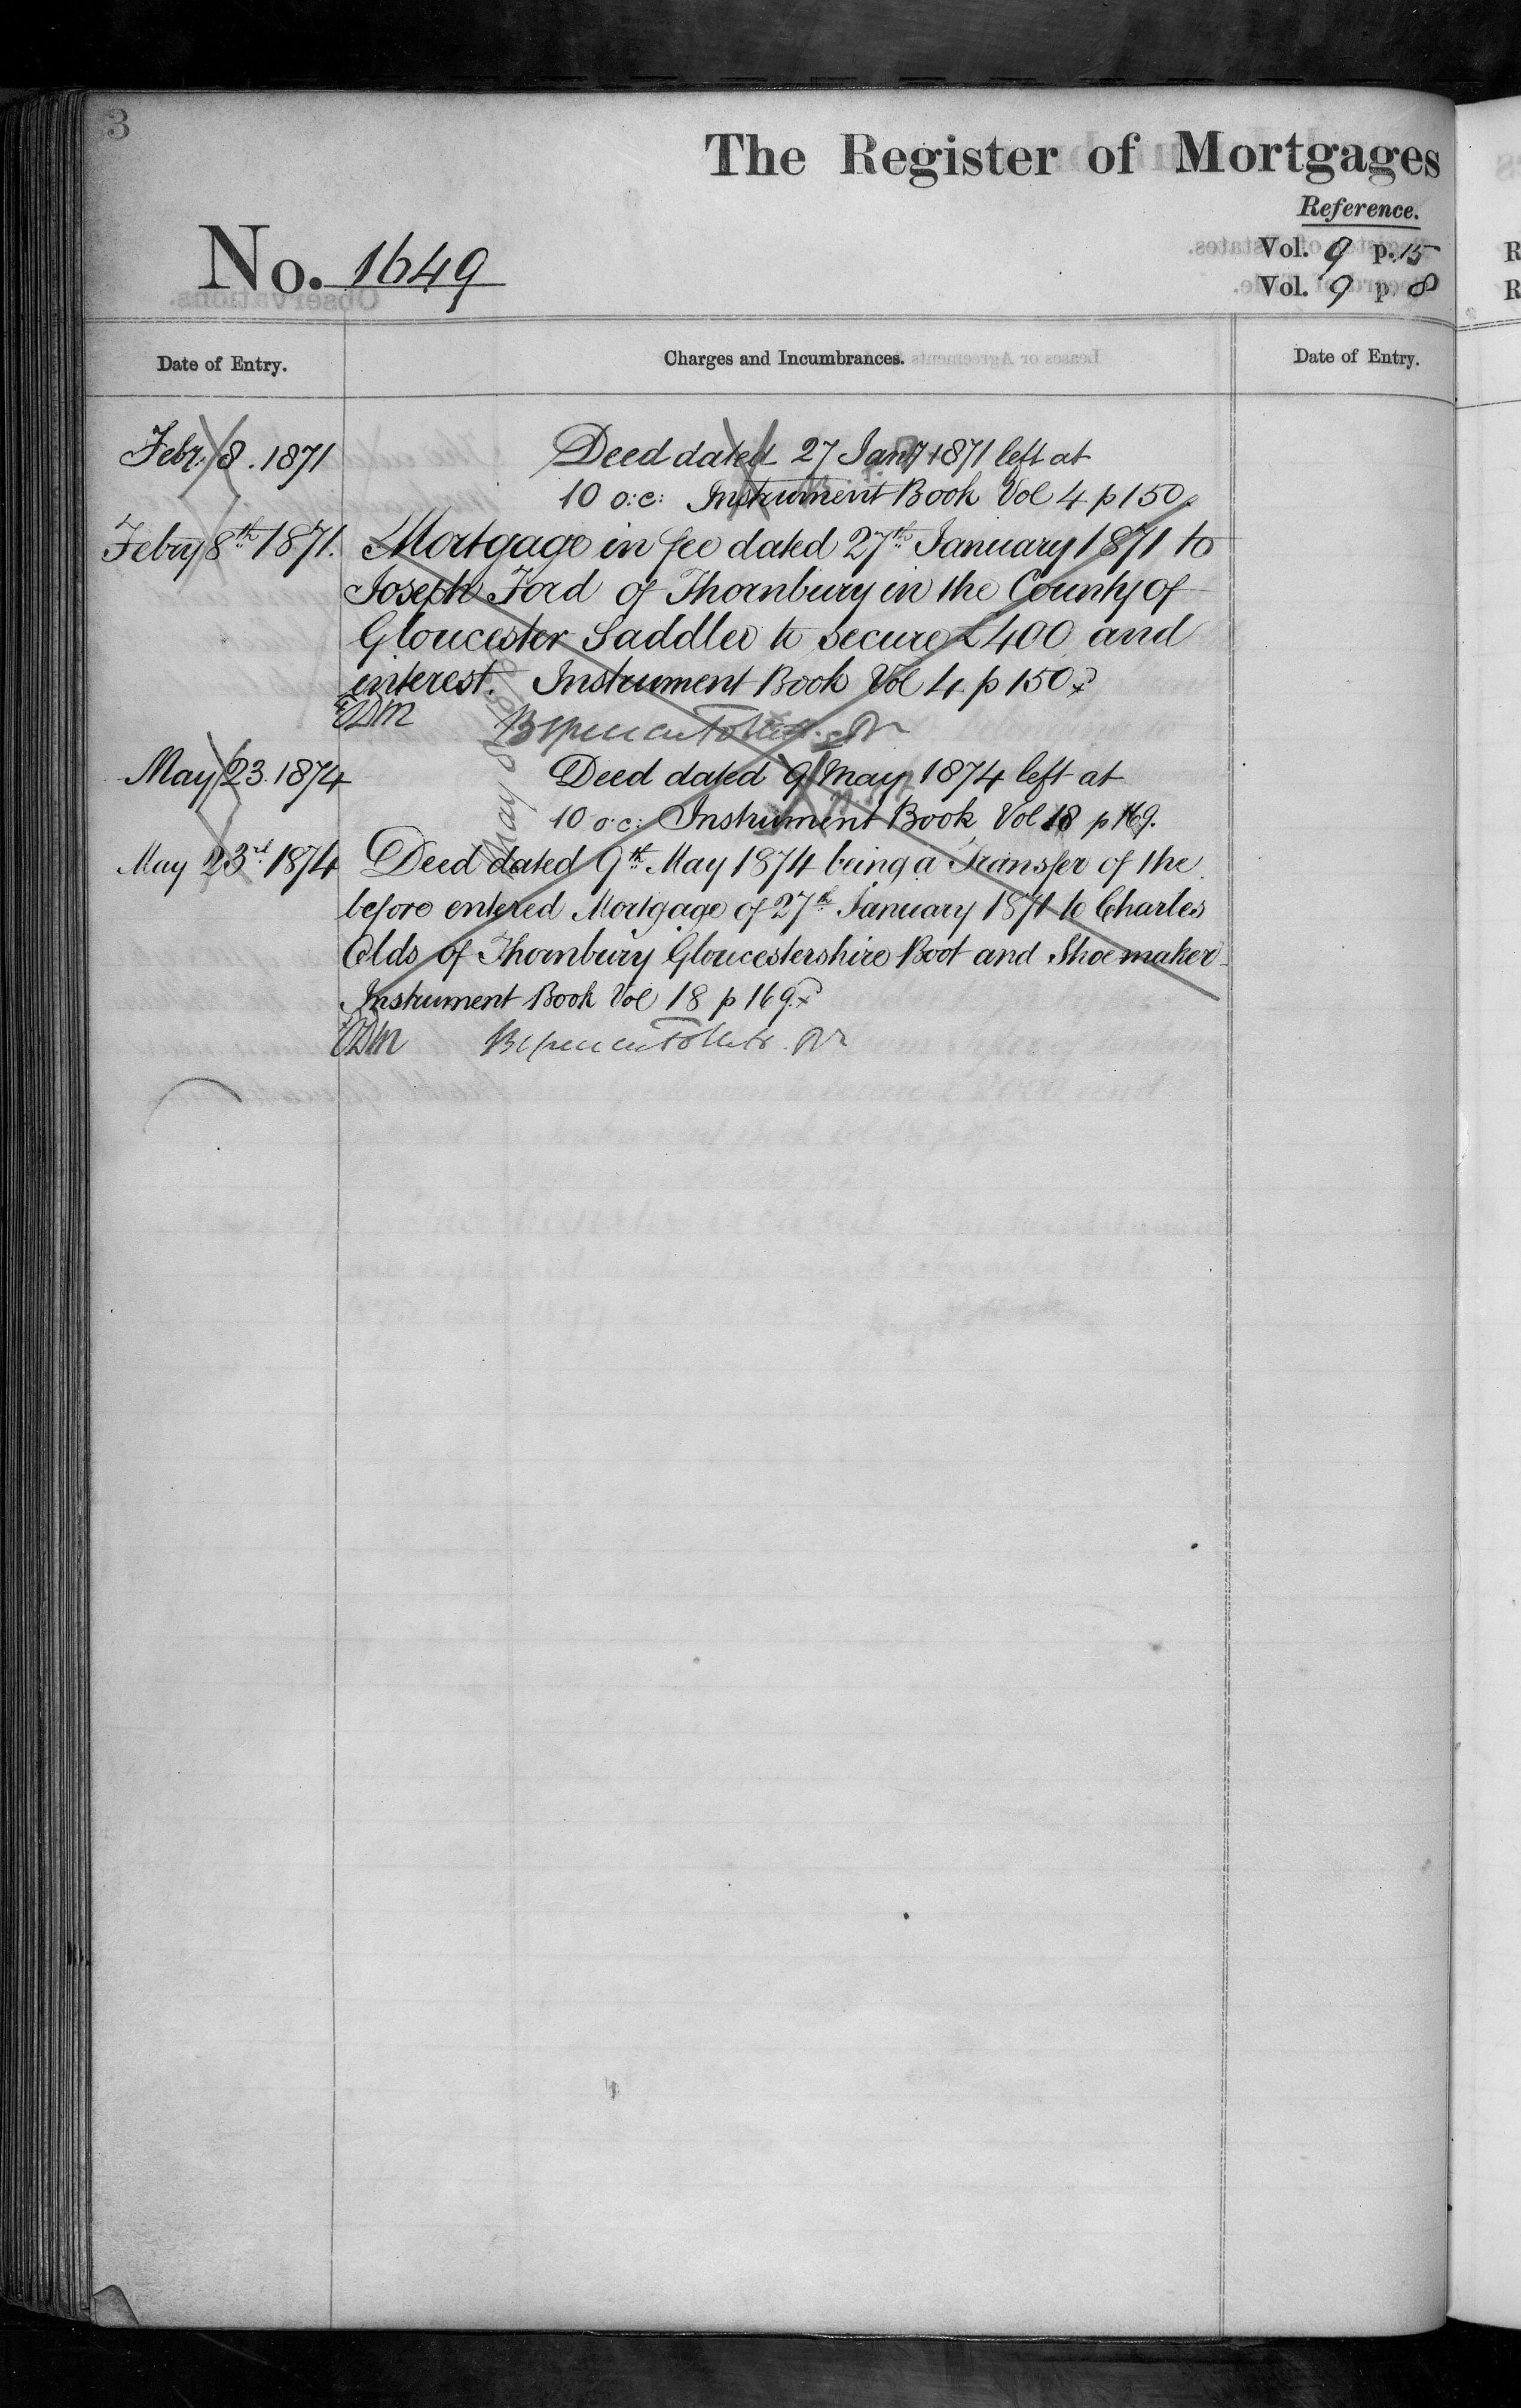 3
The Register of Mortgages
Reference.
No. 1649
Vol. 9 p. 15
Vol. 9 p. 8
Date of Entry.
Charges and Incumbrances.
Date of Entry.
Febr. 8. 1871
Deed dated 27 Jany 1871 left at
10 o:c: Instrument Book Vol 4 p 150
Febry 8th 1871.
Mortgage in fee dated 27th January 1871 to
Joseph Ford of Thornbury in the County of
Gloucester Saddler to secure £400 and
interest. Instrument Book Vol 4 p 150
May 23. 1874
Deed dated 9 May 1874 left at
10 o:c: Instrument Book Vol 18 p 169.
May 23rd 1874
Deed dated 9th May 1874 being a Transfer of the
before entered Mortgage of 27th January 1871 to Charles
Olds of Thornbury Gloucestershire Boot and Shoemaker
Instrument Book Vol 18 p 169